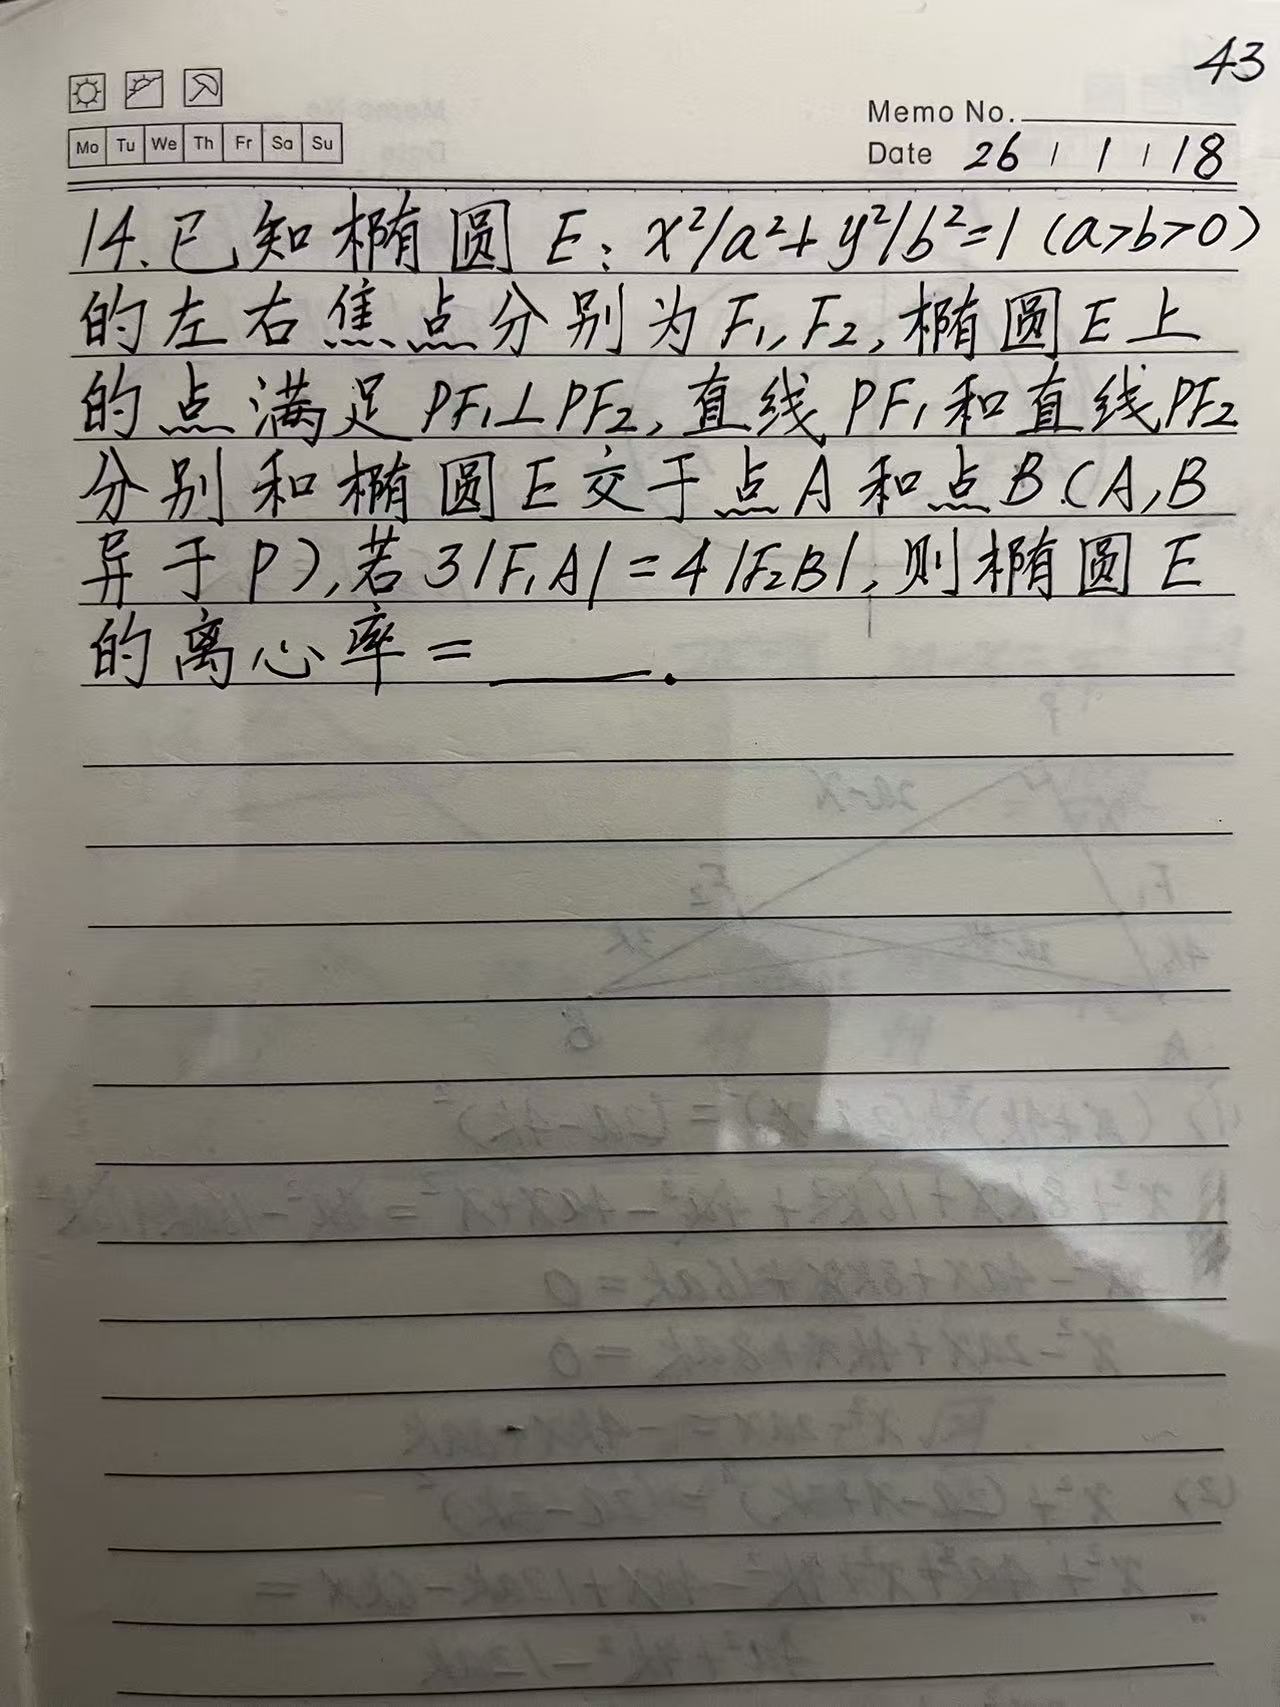 43
Memo No.
Mo Tu We Th Fr Sa Su
Date 26 / 1 / 18
14.已知椭圆E: x²/a²+y²/b²=1(a>b>0)
的左右焦点分别为F₁,F₂,椭圆E上
的点满足PF₁⊥PF₂,直线PF₁和直线PF₂
分别和椭圆E交于点A和点B.(A,B
异于P),若3|F₁A|=4|F₂B|,则椭圆E
的离心率=____.